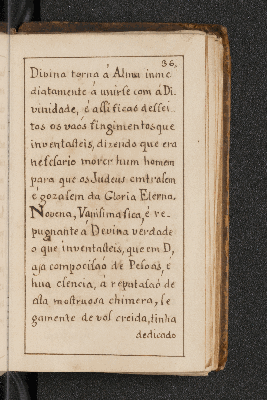 36,
Divina torna á Alma inme
diatamente á unirse com á Di-
vinidade, é assi ficas desfei-
tos os vaõs fingimientos que
inventasteis, dizendo que era
nesesario morer hum homem
para que os Judeus emtrasem
é gozasem da Gloria Eterna.
Novena, Vanissima fica, é re-
pugnante á Devina verdade
o que inventasteis, que em D,
aja compocisaõ de Pesoas, é
hua esencia, á reputasaõ de
sta mostruosa chimera, le
gamente de vos creida, tinha
dedicado